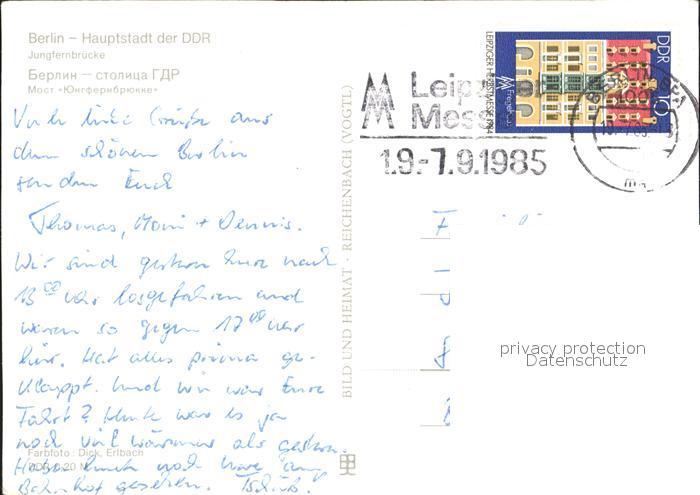 Berlin – Hauptstadt der DDR
Jungfernbrücke
Берлин – столица ГДР
Мост «Юнгфернбрюкке»
Viele liebe Grüße aus
dem schönen Berlin
senden Euch
Thomas, Moni + Dennis.
Wir sind gestern kurz nach
13 00 Uhr losgefahren und
waren so gegen 17 00 Uhr
hier. Hat alles prima ge-
klappt. Und wie war Eure
Fahrt? Heute war es ja
noch viel wärmer als gestern.
Haben Euch noch vom
Bahnhof gesehen. Tschüß.
Farbfoto: Dick, Erlbach
0,20 M
BILD UND HEIMAT · REICHENBACH (VOGTL)
Leipziger
Messe
1.9.-7.9.1985
LEIPZIGER HERBSTMESSE 1984
DDR
10
privacy protection
Datenschutz